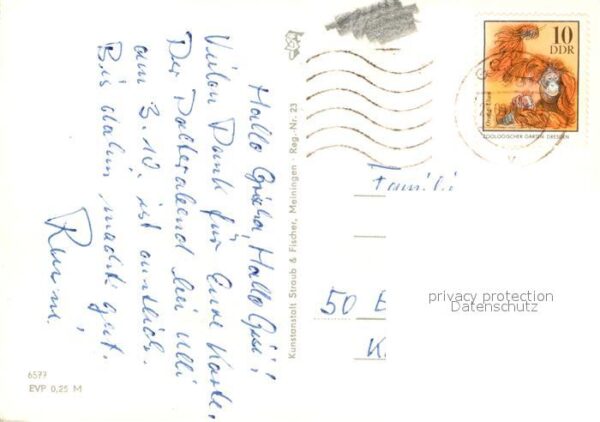 Hallo Gisela, Hallo Gisi!
Vielen Dank für Eure Karte.
Der Polterabend bei Ulli
am 3.10. ist amtlich.
Bis dahin, macht's gut.
Kunstanstalt Straub & Fischer, Meiningen · Reg.-Nr. 23
10
DDR
Orang-Utan
ZOOLOGISCHER GARTEN DRESDEN
Famili
50 E
K
privacy protection
Datenschutz
6577
EVP 0,25 M